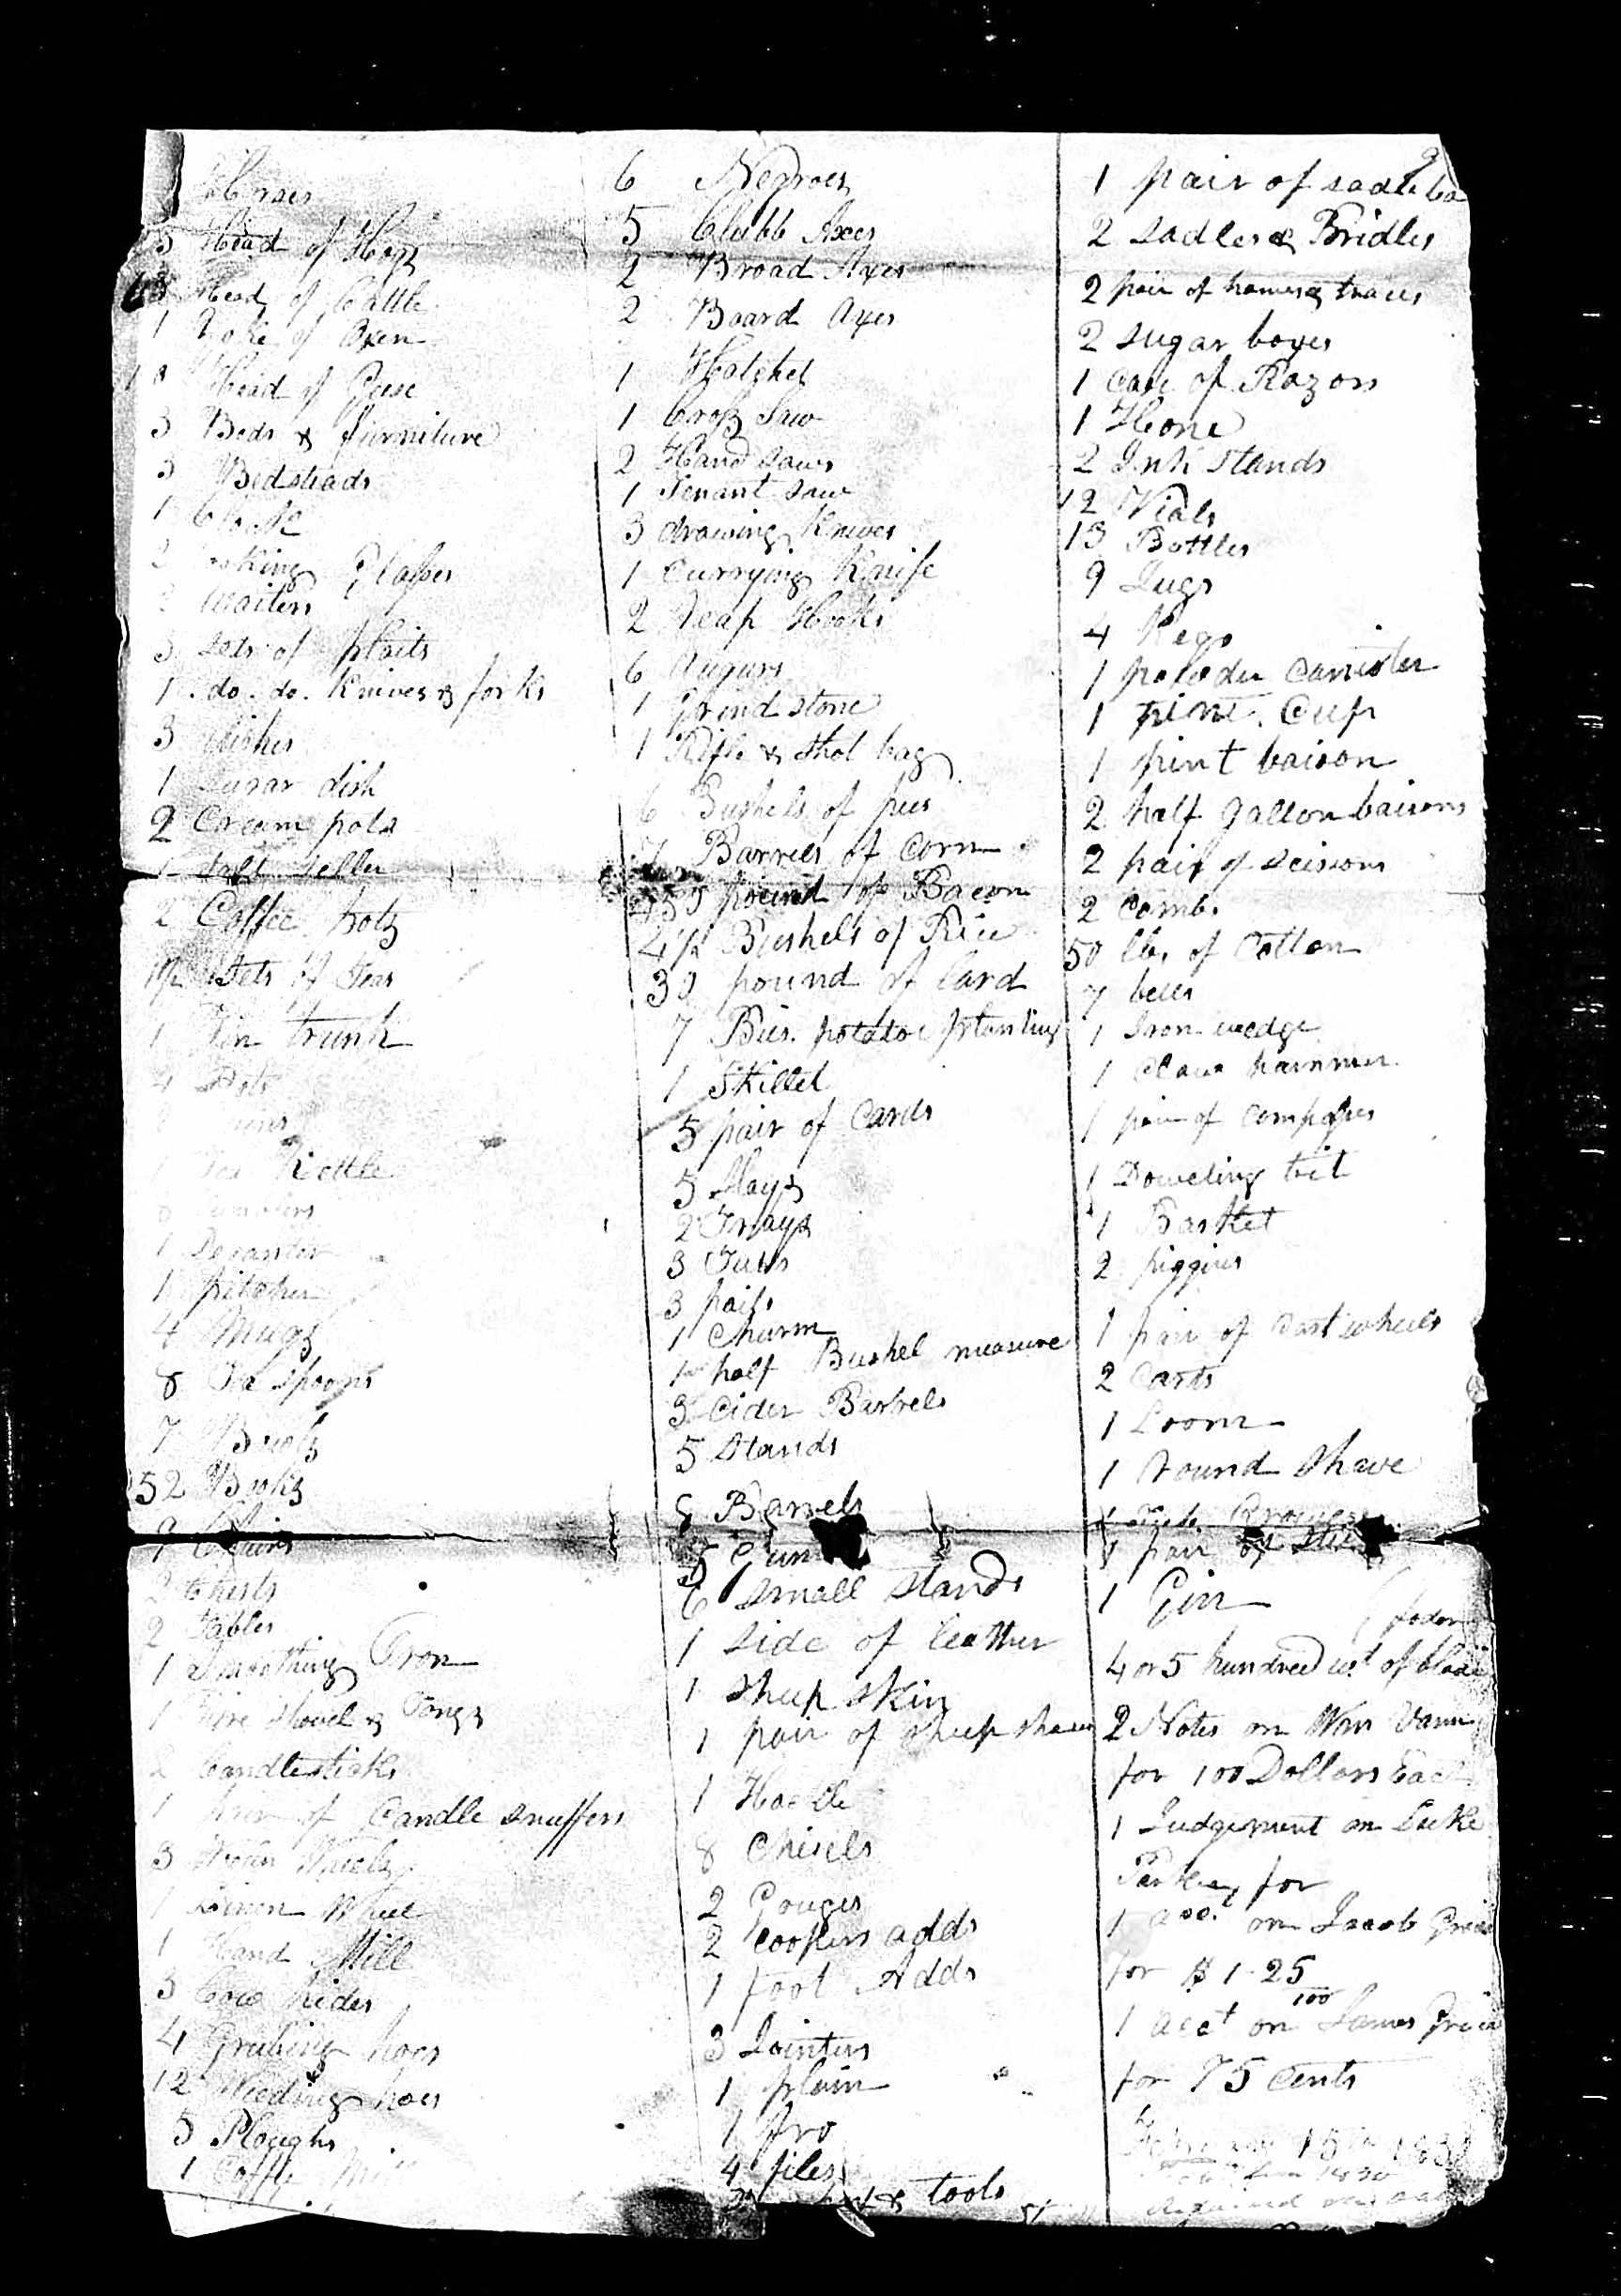 Horses
Head of Hogs
Head of Cattle
1 Yoke of Oxen
Head of Geese
3 Beds & furniture
3 Bedsteads
1 Clock
Glasses
Waiters
3 Sets of plaits
1 do. do. Knives & forks
3 dishes
1 Sugar dish
2 Cream pots
1 Salt Seller
2 Coffee pots
Sets of Teas
1 Tin trunk
4 Pots
Kettle
1 Decanter
1 pitcher
4 Mugs
8 Tea Spoons
7
52 Books
9 Chairs
2 Chests
2 Tables
1 Smoothing Iron
1 Fire Shovel & Tongs
2 Candlesticks
1 pair of Candle Snuffers
3
1 Linen Wheel
1 Hand Mill
3 Cow hides
4 Grubing hoes
12 Weeding hoes
5 Ploughs
1 Coffe
6 Negroes
5 Clubb Axes
2 Broad Axes
2 Board Axes
1 Hatchet
1 Cross Saw
2 Hand Saws
1 Tenant Saw
3 drawing Knives
1 Currying Knife
2 reap Hooks
6 Augurs
1 Grind stone
1 Rifle & Shot bag
6 Bushels of peas
7 Barrels of Corn
450 pound of Bacon
4 1/2 Bushels of Rice
30 pound of lard
7 Bus. potatoe planting
1 Skillet
5 pair of Cards
5 Slays
2 Trays
3 Tubs
3 pails
1 Churn
1 half Bushel measure
3 Cider Barrels
5 Stands
8 Barrels
5
6 small stands
1 side of leather
1 sheep skin
1 pair of Sheep shears
1 Hackle
8 Chisels
2 Gouges
2 Coopers adds
1 foot Adds
3 Jointers
1 plain
1 fro
4 files
& tools
1 pair of sadle ba
2 sadles & Bridles
2 pair of hames & traces
2 sugar boxes
1 Case of Razors
1 Hone
2 Ink Stands
12 Vials
13 Bottles
9 Jugs
4 Kegs
1 powder Canister
1 pint Cup
1 pint baison
2 half gallon baisons
2 pair of scissors
2 Combs
50 lbs. of Cotton
7 bells
1 Iron wedge
1 Claw hammer
1 pair of Compasses
1 Doweling bit
1 Basket
2 piggins
1 pair of Cart wheels
2 Carts
1 Loom
1 round Shave
1
1 pair of
1 Gin
foder
4 or 5 hundred wt of blade
2 Notes on Wm Vann
for 100 Dollars Each
1 Judgement on Luke
for
1 acct on Jacob
for $1.25/100
1 acct on James
for 75 Cents
15th